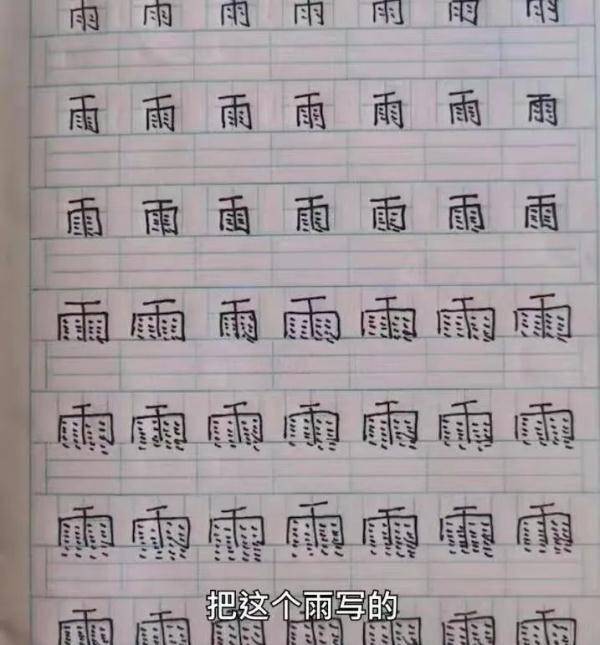 雨 雨 雨 雨 雨 雨 雨
雨 雨 雨 雨 雨 雨 雨
雨 雨 雨 雨 雨 雨 雨
雨 雨 雨 雨 雨 雨 雨
雨 雨 雨 雨 雨 雨 雨
雨 雨 雨 雨 雨 雨 雨
把这个雨写的
雨 雨 雨 雨 雨 雨 雨